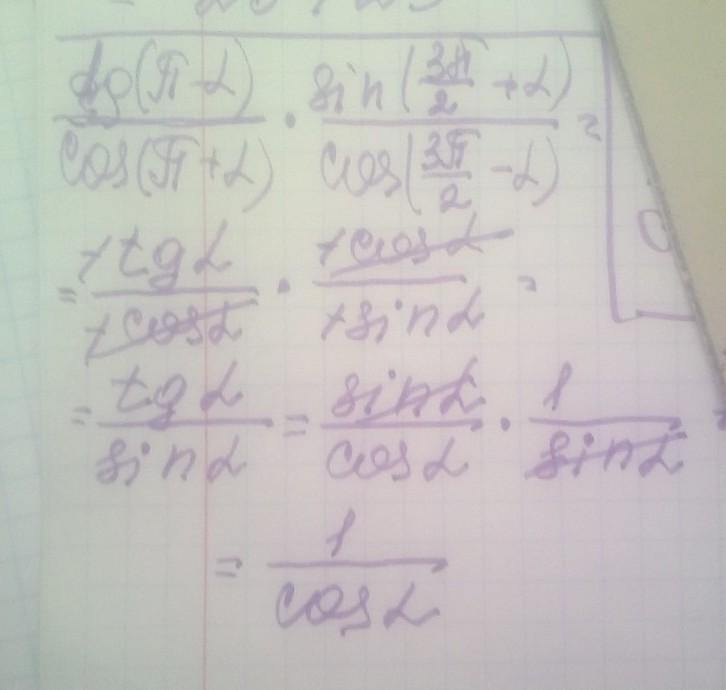 tg(π-α)/cos(π+α) · sin(3π/2 +α)/cos(3π/2 -α) =
= -tgα/-cosα · -cosα/-sinα =
= tgα/sinα = sinα/cosα · 1/sinα =
= 1/cosα